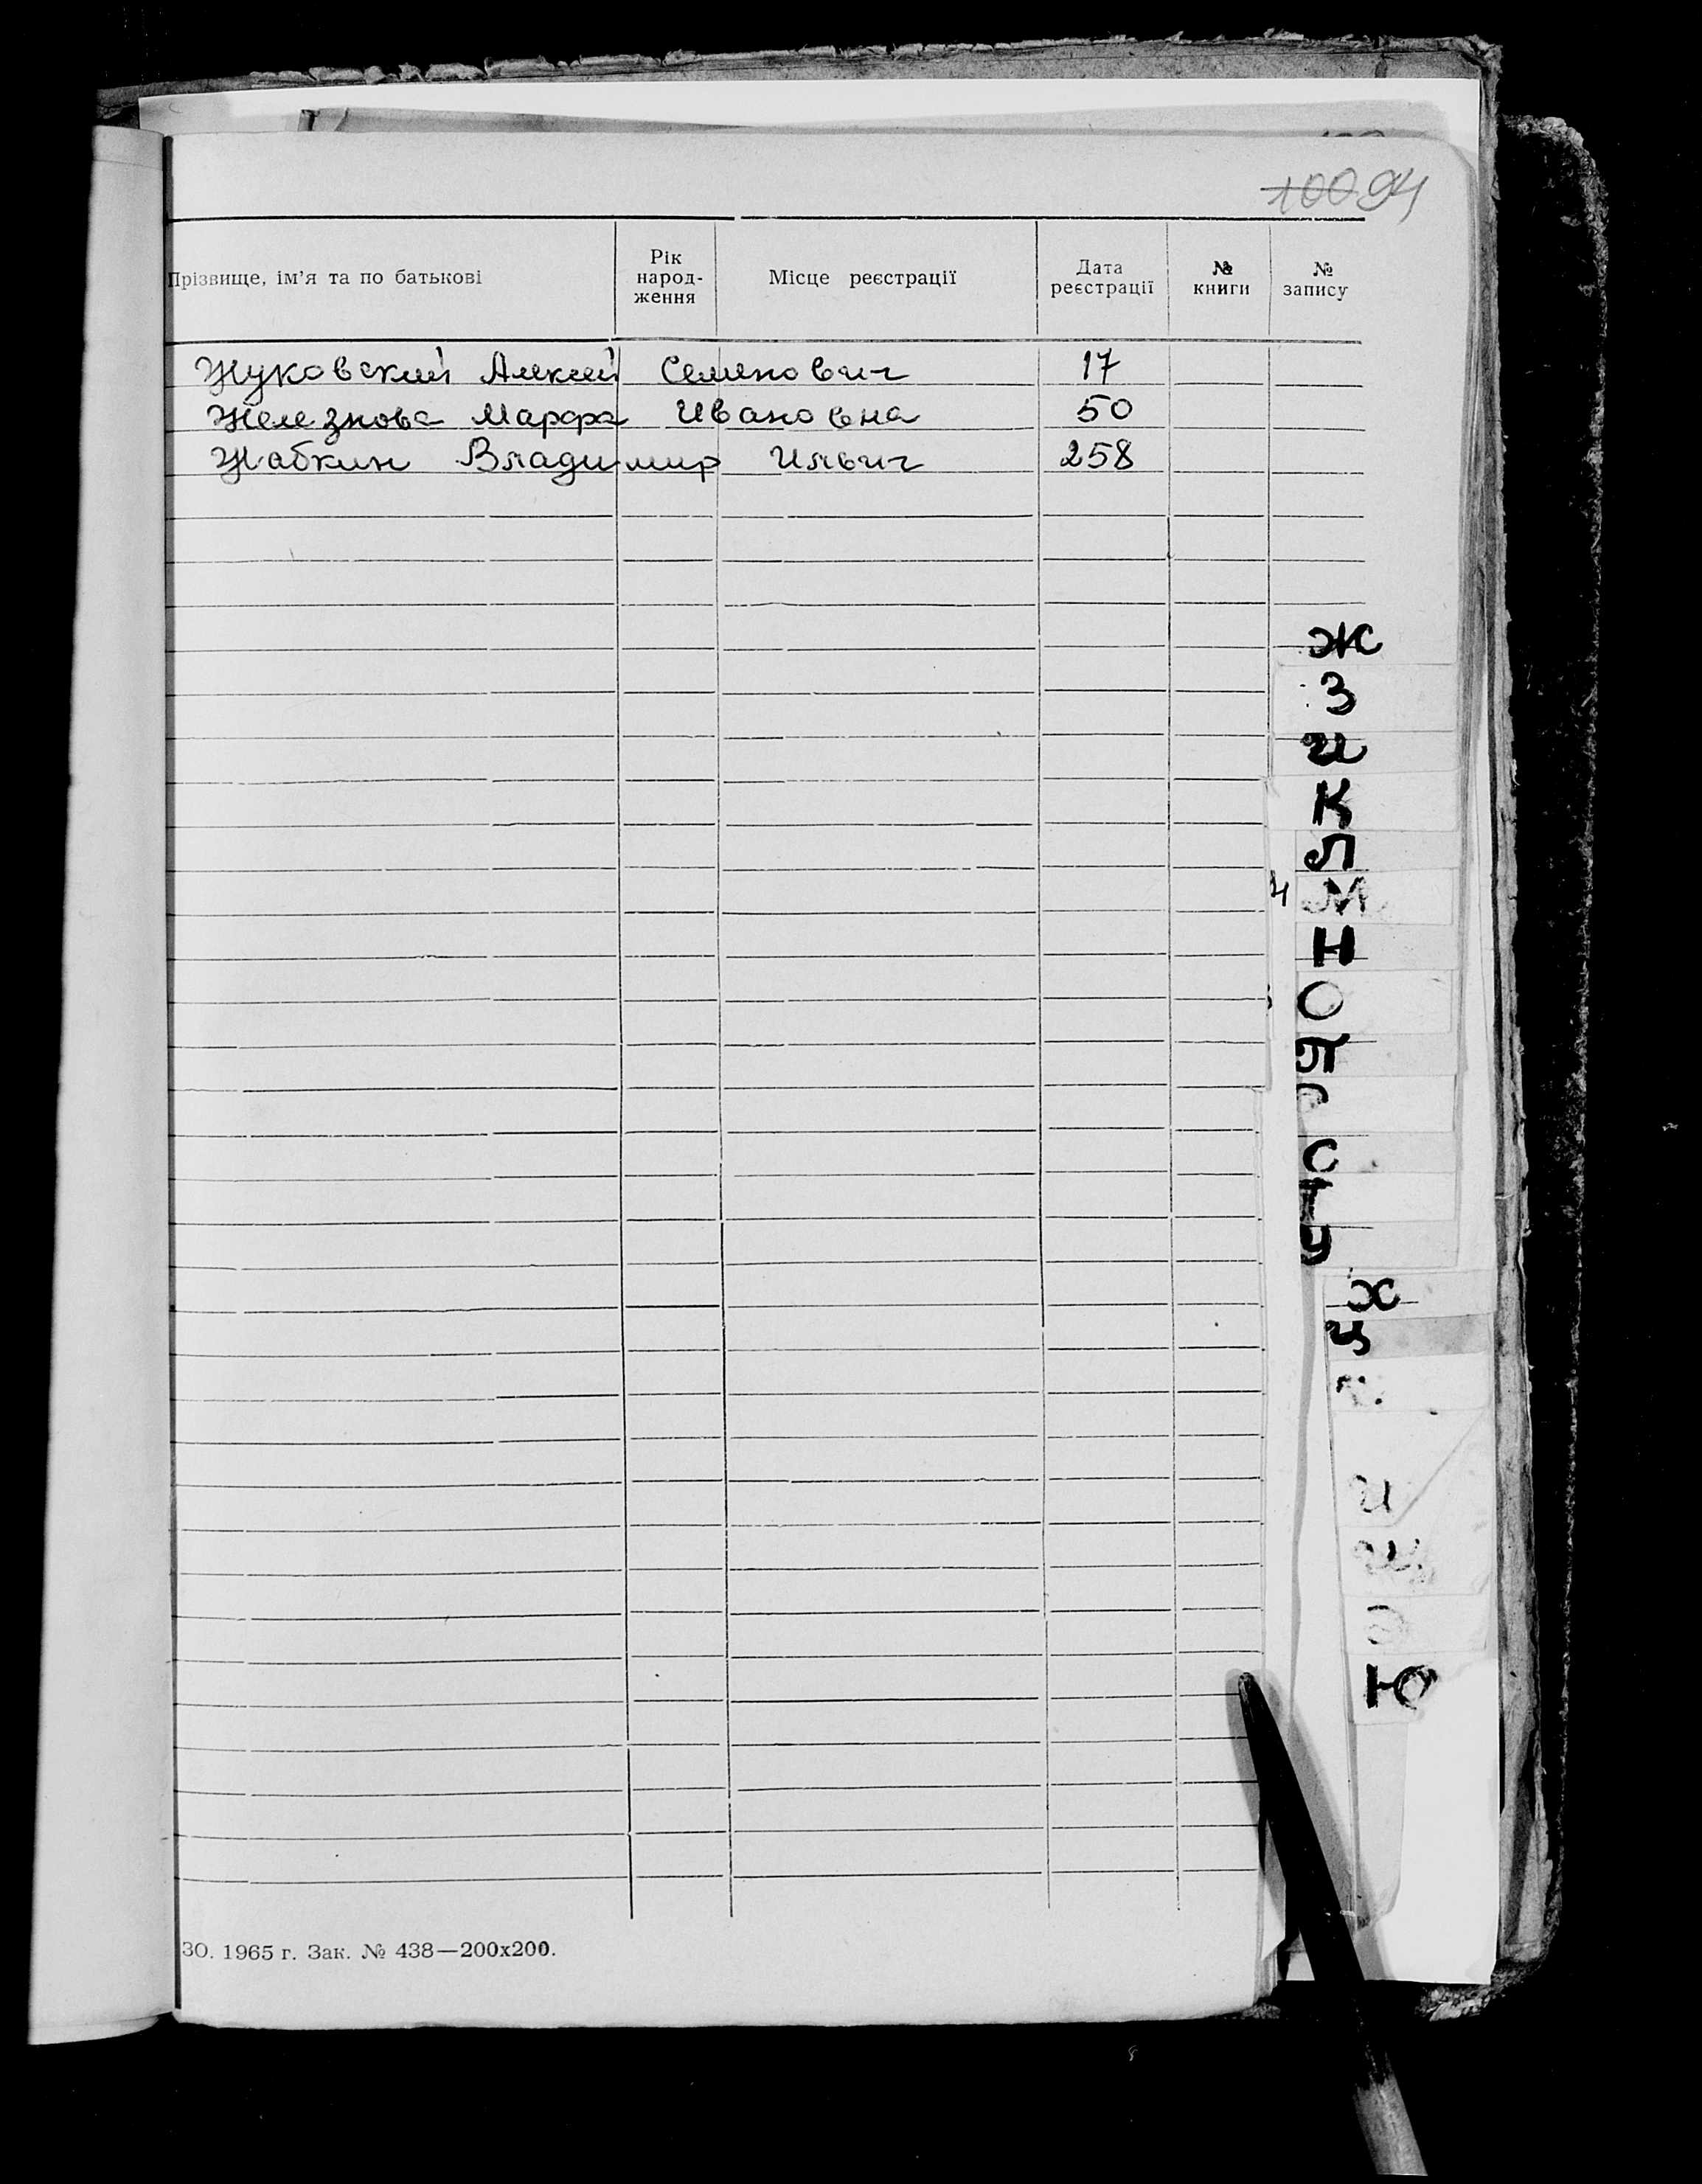 100 94
Прізвище, ім'я та по батькові | Рік народ-ження | Місце реєстрації | Дата реєстрації | № книги | № запису
Жуковский Алексей Семенович 17
Железнова Марфа Ивановна 50
Жабкин Владимир Ильич 258
Ж
З
И
К
Л
М
Н
О
П
Р
С
Т
У
Х
Ц
Ю
ЗО. 1965 г. Зак. № 438—200х200.